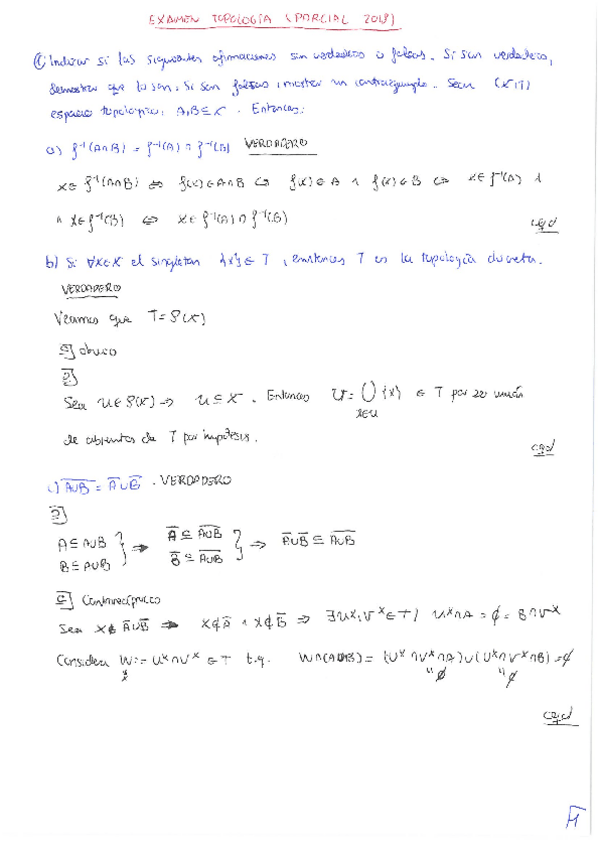 EXAMEN TOPOLOGÍA (PARCIAL 2018)
① Indicar si las siguientes afirmaciones son verdaderas o falsas. Si son verdaderas,
demostrar que lo son. Si son falsas, mostrar un contraejemplo. Sean (X,T)
espacio topológico, A,B⊆X. Entonces:
a) f⁻¹(A∩B) = f⁻¹(A) ∩ f⁻¹(B) VERDADERO
x∈f⁻¹(A∩B) ⇔ f(x)∈A∩B ⇔ f(x)∈A ∧ f(x)∈B ⇔ x∈f⁻¹(A) ∧
∧ x∈f⁻¹(B) ⇔ x∈f⁻¹(A)∩f⁻¹(B) cqd
b) Si ∀x∈X el singleton {x}∈T, entonces T es la topología discreta.
VERDADERO
Veamos que T=P(X)
⊆] obvio
⊇]
Sea U∈P(X) ⇒ U⊆X. Entonces U=⋃{x} ∈ T por ser unión
x∈U
de abiertos de T por hipótesis. cqd
c) A̅∪̅B̅ = A̅∪B̅. VERDADERO
⊇]
A⊆A∪B } ⇒ A̅ ⊆ A̅∪̅B̅ } ⇒ A̅∪B̅ ⊆ A̅∪̅B̅
B⊆A∪B B̅ ⊆ A̅∪̅B̅
⊆] Contrarecíproco
Sea x∉A̅∪B̅ ⇒ x∉A̅ ∧ x∉B̅ ⇒ ∃Uˣ,Vˣ∈T / Uˣ∩A=∅=B∩Vˣ
Considera W:=Uˣ∩Vˣ∈T t.q. W∩(A∪B)=(Uˣ∩Vˣ∩A)∪(Uˣ∩Vˣ∩B)=∅
x "∅ "∅
cqd